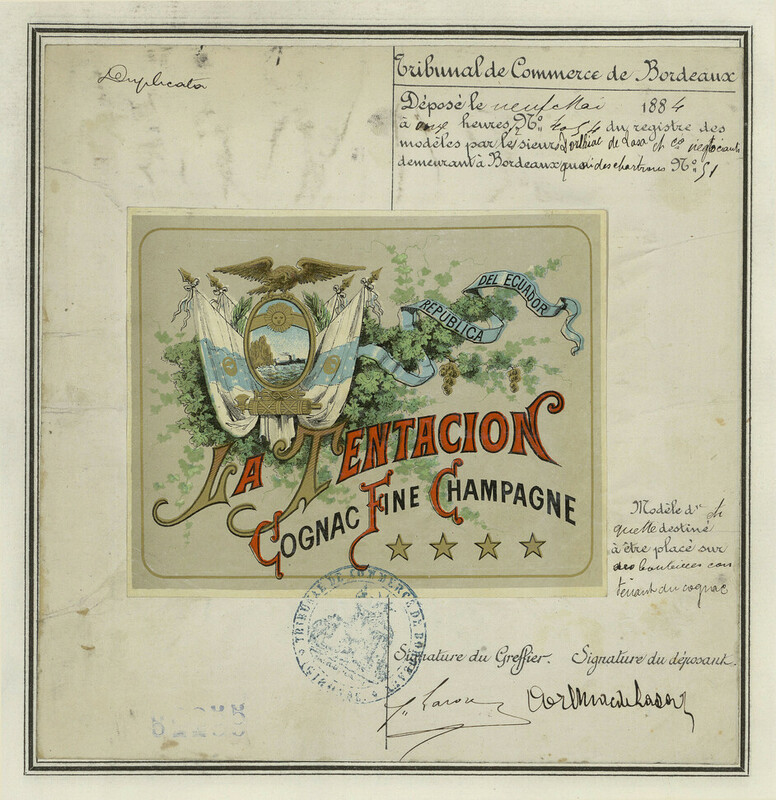 Duplicata
Tribunal de Commerce de Bordeaux
Déposé le neuf Mai 1884
à onze heures, No. du registre des
modèles par les sieurs de négociants
demeurant à Bordeaux quai des chartrons No. 51
REPUBLICA DEL ECUADOR
LA TENTACION
COGNAC FINE CHAMPAGNE
Modèle d'
quette destiné
à être placé sur
des bouteilles con
tenant du cognac
TRIBUNAL DE COMMERCE DE BORDEAUX
Signature du Greffier. Signature du déposant.